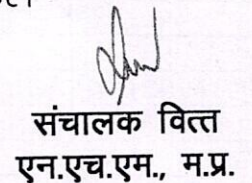 संचालक वित्त
एन.एच.एम., म.प्र.